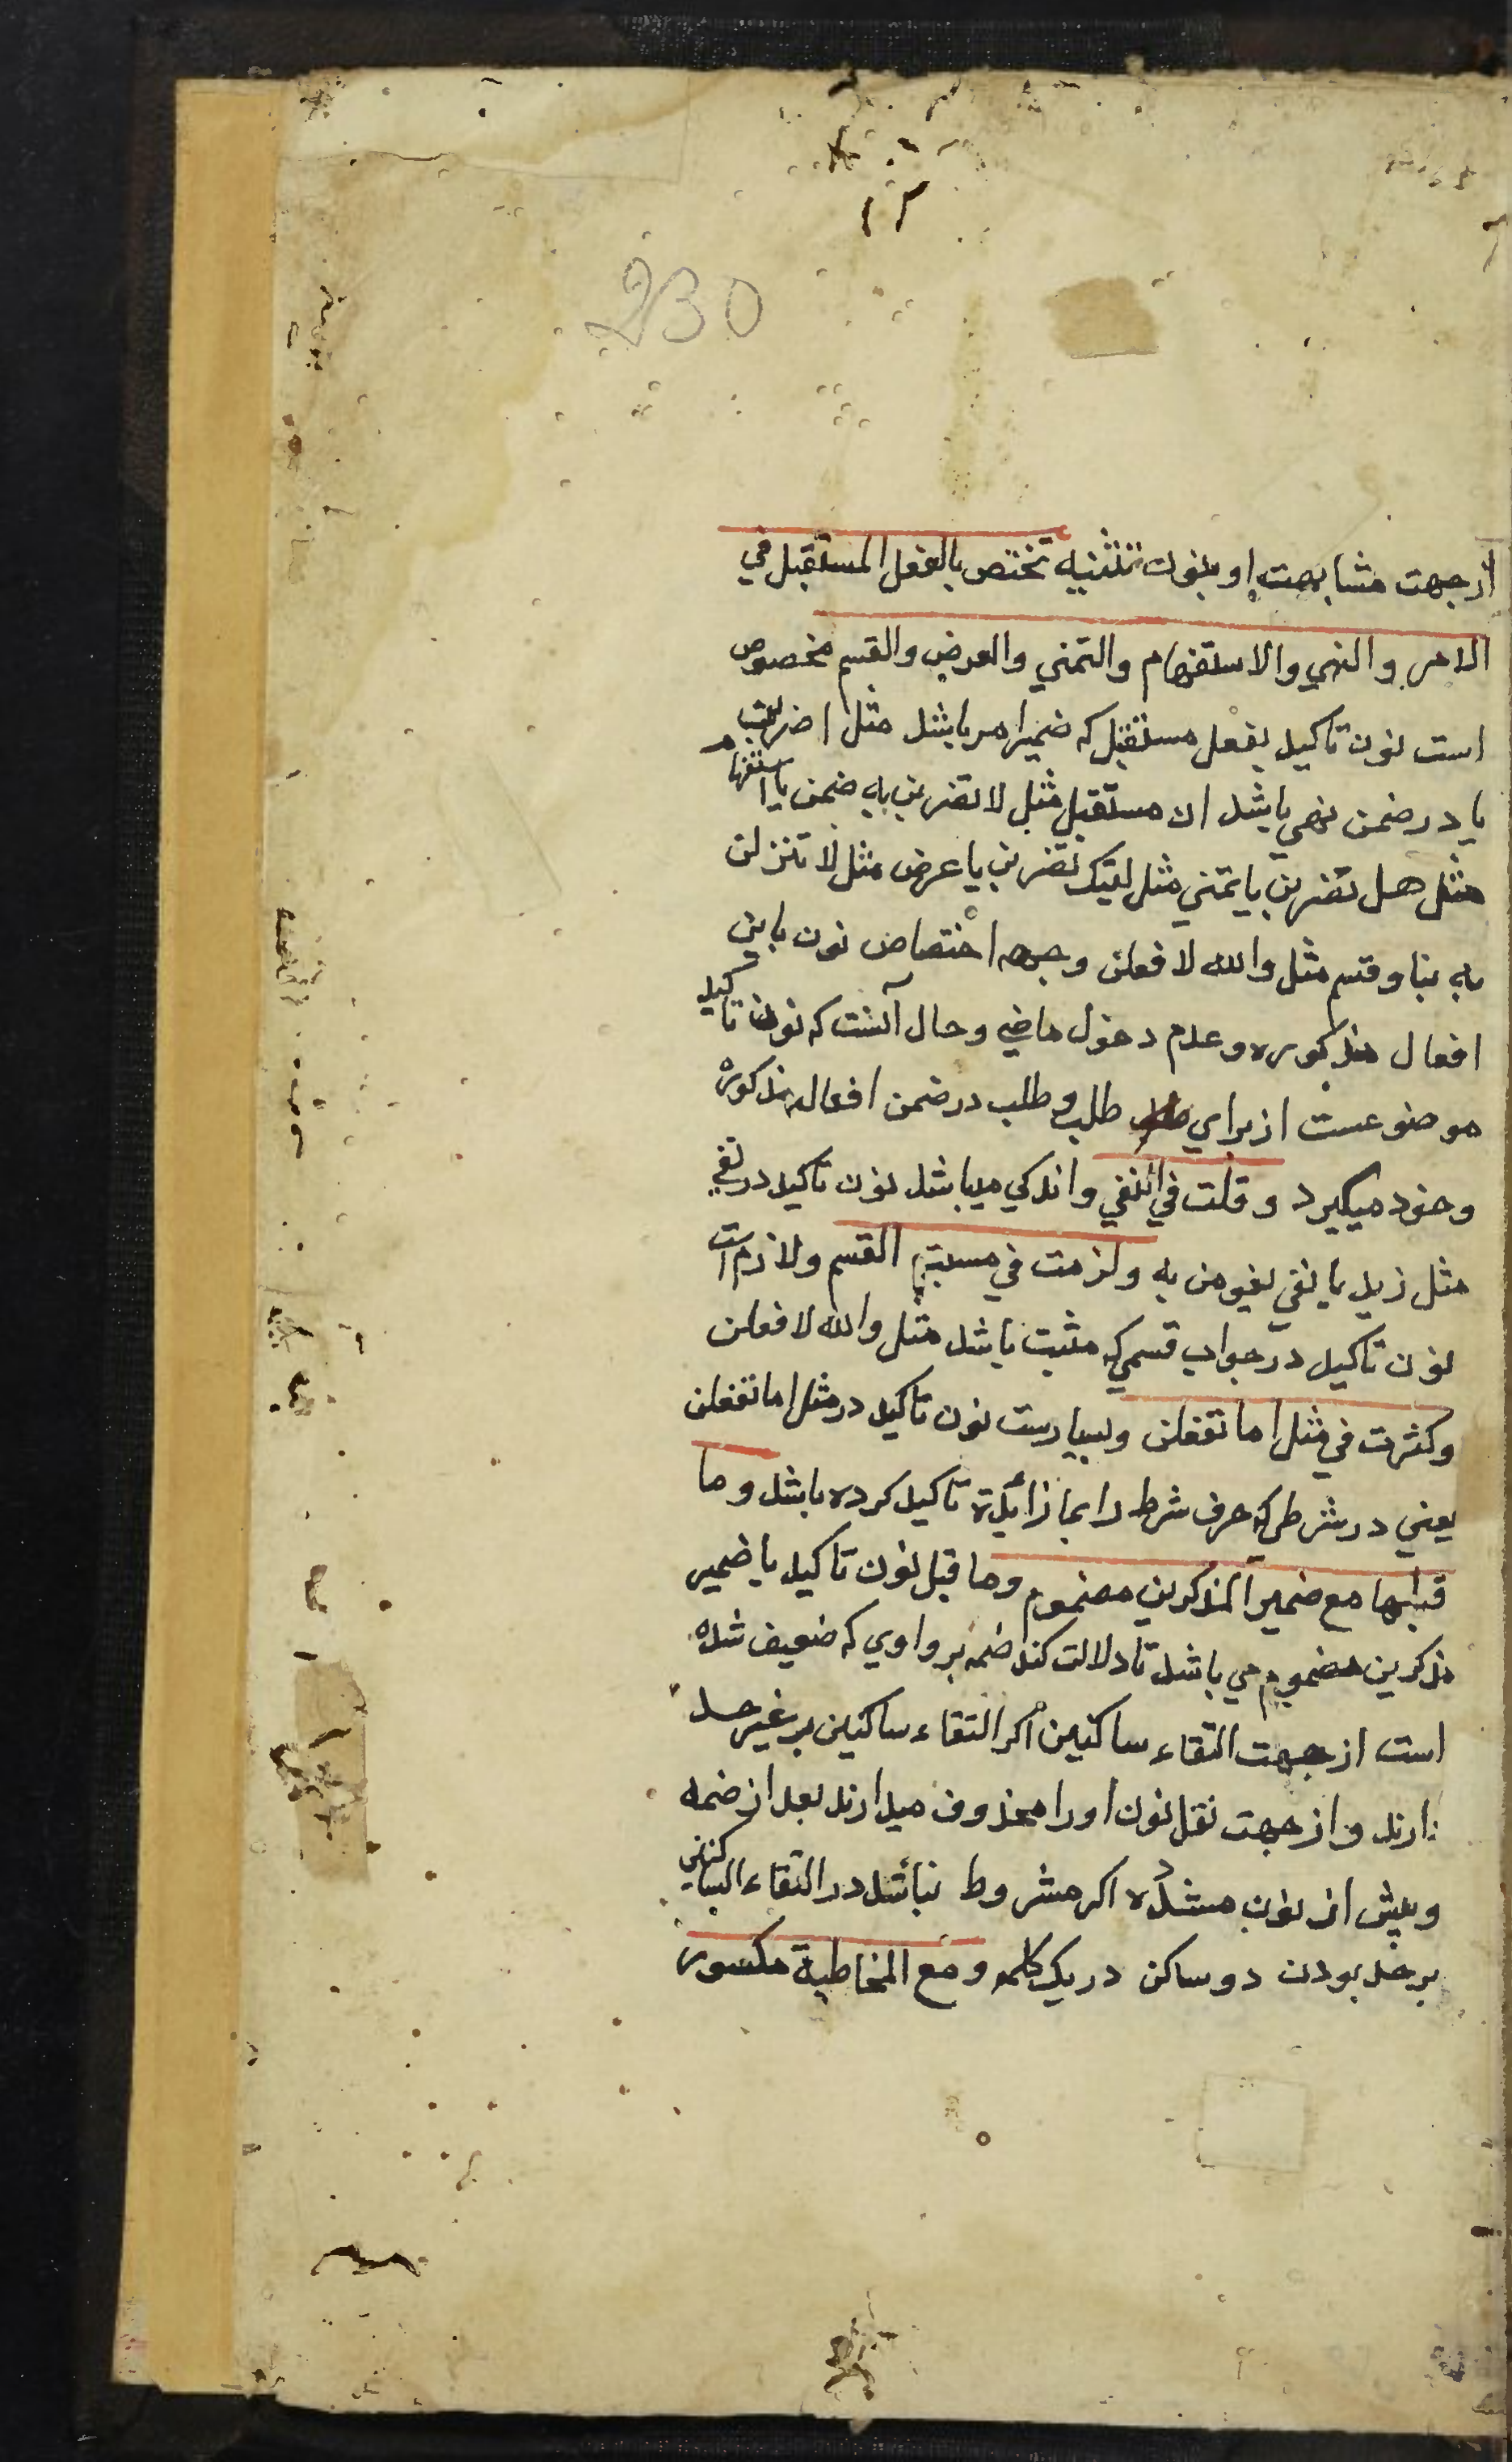 230
ازجهت مشابهت او بنون تثنیه تختص بالفعل المستقبل في
الامر والنهي والاستفهام والتمني والعرض والقسم مخصوص
است نون تاکید بفعل مستقبل که ضمیر امر باشد مثل اضربن
یا در ضمن نهي باشد ان مستقبل مثل لا تضربن به ضمن یا استفهام
مثل هل تضربن یا تمني مثل لیتک تضربن یا عرض مثل لا تنزلن
به بنا و قسم مثل والله لافعلن وجه اختصاص نون باین
افعال مذکوره وعدم دخول ماضي وحال آنست که نون تاکید
موضوعست از براي طلب و طلب در ضمن افعال مذکوره
وجود میکیرد وقلت في النفي واندکي میباشد نون تاکید در نفي
مثل زید ما یقومن به ولزمت في مسبة القسم ولازم است
نون تاکید در جواب قسمي که مثبت باشد مثل والله لافعلن
وکثرت في مثل اما تفعلن وبسیارست نون تاکید در مثل اما تفعلن
یعني در شرطي که حرف شرط را بما زائدة تاکید کرده باشد وما
قبلها مع ضمیر المذکرین مضموم وما قبل نون تاکید با ضمیر
مذکرین مضموم مي باشد تا دلالت کند ضمه بر واوي که ضعیف شده
است ازجهت التقاء ساکنین اکر التقاء ساکنین بر غیر حد
دارند و ازجهت نقل نون اورا محذوف میدارند بعد از ضمه
وپیش از نون مشدّده اکر مشروط نباشد در التقاء الساکنین
برحد بودن دو ساکن در یک کلمه ومع المخاطبة مکسور